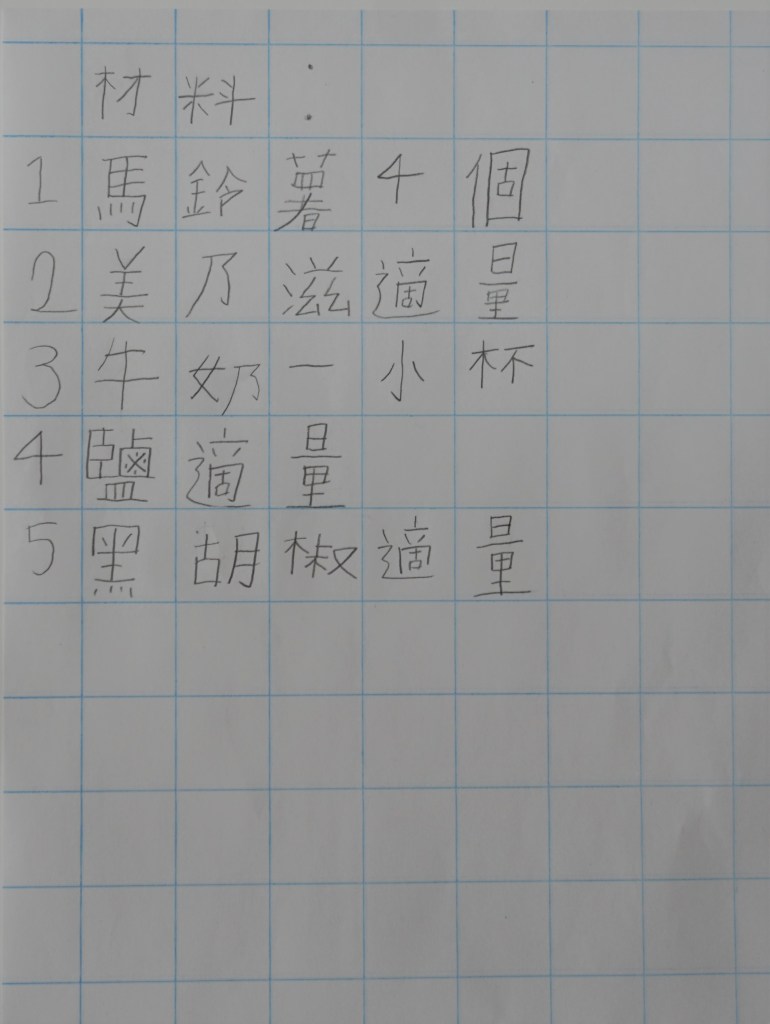 材料：
1馬鈴薯4個
2美乃滋適量
3牛奶一小杯
4鹽適量
5黑胡椒適量